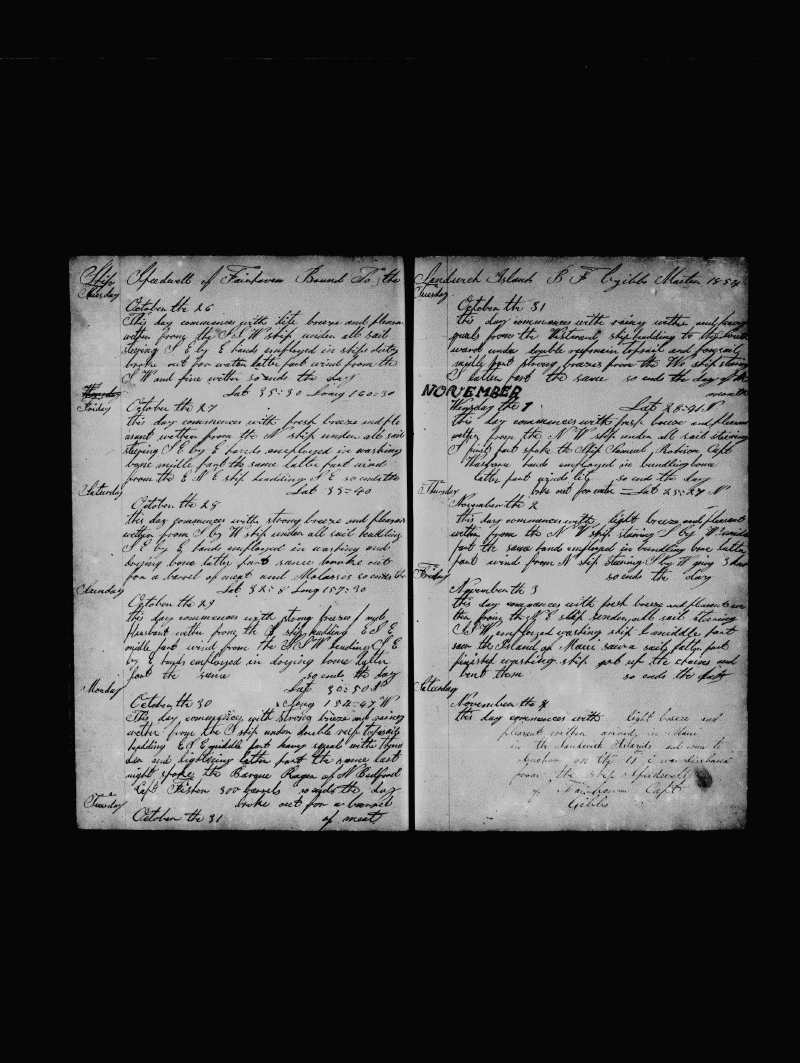 Ship Speedwell of Fairhaven Bound To the
Thursday
October the 26
This day commences with lite breeze and pleasan
wether from the S S W ship under all sail
steering S E by E hands employed in ships duty
broke out for water latter part wind from the
S W and fine wether so ends the day
Lat 35=30 Long 160=30
Friday
October the 27
this day commences with fresh breeze and ple
asant wether from the N ship under all sail
steering S E by E hands employed in washing
bone midle part the same latter part wind
from the E N E ship headding S E so ends the
Lat 33=40
Saturday
October the 28
this day commences with strong breeze and pleasan
wether from S by W ship under all sail headding
S E by E hands employed in washing and
drying bone latter part same brooke out
for a barel of meat and Molasses so ends the
Lat 32=8 Long 157=30
Sunday
October the 29
this day commences with strong breeze and
pleasant wether from the S ship headding E S E
midle part wind from the S S W heading S E
by E hands employed in drying bone latter
part the same so ends the day
Lat 30=50 N
Monday
October the 30 Long 152=47 W
This day commences with strong breeze and rainey
wether from the S ship under double reep topsails
hedding E S E middle part heavy squals with thun
der and lightning latter part the same last
night spoke the Barque Roger of N Bedford
Capt 300 barrels so ends the day
broke out for a barrel
of meat
Tuesday
October the 31
Sandwich Islands B F Gibbs Master 1854
Tuesday
October the 31
this day commences with rainy wether and
squals from the Westward ship hedding to the South
ward under double reep main topsail and foresail
midle part strong breezes from the W ship steering
S latter part the same so ends the day of the
month
NOVEMBER
Wensday the 1 Lat 28=21 N
this day commences with fresh breeze and pleasant
wether from the N W ship under all sail steering
S first part spoke the Ship Samuel Robison Capt
hands employed in bundling bone
latter part winds lite so ends the day
broke out for water Lat 25=27 N
Thursday
November the 2
this day commences with light breeze and pleasant
wether from the N W ship stering S by W midle
part the same hands employed in bundling bone latter
part wind from N ship Steering S by W
so ends the day
Friday
November the 3
this day commences with fresh breeze and pleasant we
ther from the N E ship under all sail steering
S S W employed washing ship midle part
saw the Island of Maui latter part
finished washing ship got up the chaines and
bent them so ends the day
Saturday
November the 4
this day commences with light breeze and
plesent wether arived in
in the Sandwich Islands and went to
on the 11
from the ship Speedwell
of Fairhaven Capt
Gibbs